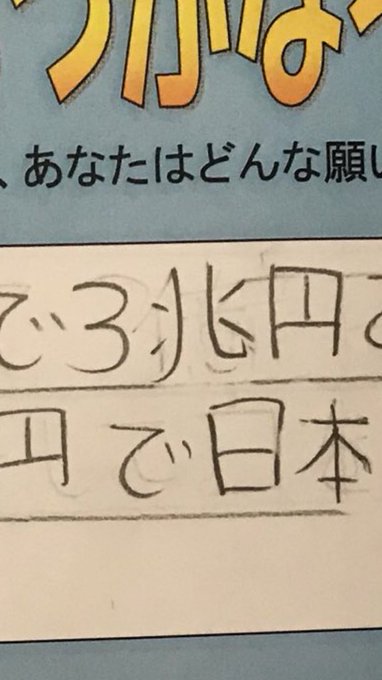 うかなえ
、あなたはどんな願い
で3兆円で
円で日本